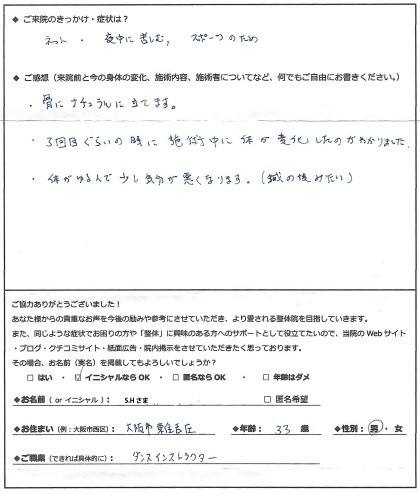 ◆ ご来院のきっかけ・症状は？
ネット ・ 夜中に苦しむ, スポーツのため
◆ ご感想（来院前と今の身体の変化、施術内容、施術者についてなど、何でもご自由にお書きください。）
・骨にナチュラルに立てます。
・3回目ぐらいの時に施術中に体が変化したのがわかりました.
・体がゆるんで少し気分が悪くなります。（鍼の後みたい）
ご協力ありがとうございました！
あなた様からの貴重なお声を今後の励みや参考にさせていただき、より愛される整体院を目指していきます。
また、同じような症状でお困りの方や「整体」に興味のある方へのサポートとして役立てたいので、当院のWebサイト
・ブログ・クチコミサイト・紙面広告・院内掲示をさせていただきたく思っております。
その場合、お名前（実名）を掲載してもよろしいでしょうか？
□ はい ・ ☑ イニシャルなら OK ・ □ 匿名なら OK ・ □ 年齢はダメ
◆お名前（ or イニシャル）： S.Hさま □ 匿名希望
◆お住まい（例：大阪市西区）： 大阪市東住吉区 ◆年齢： 33 歳 ◆性別： 男 ・ 女
◆ご職業（できれば具体的に）： ダンスインストラクター